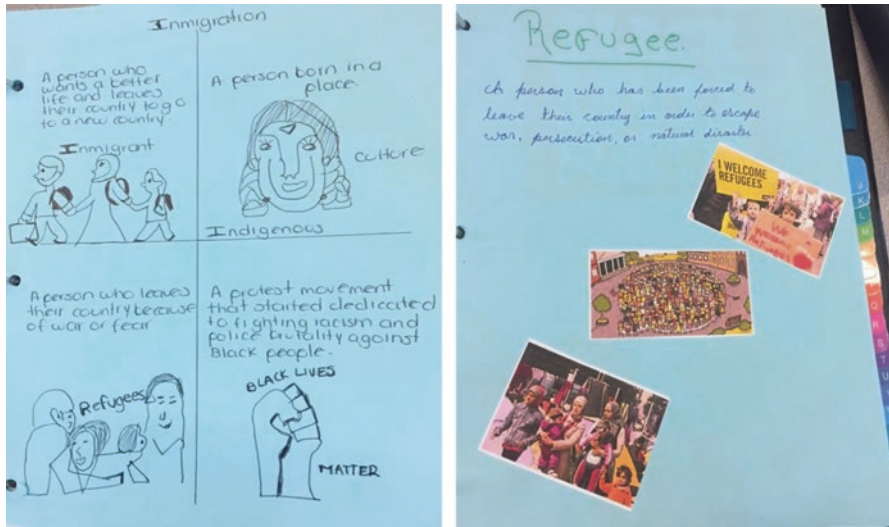 Inmigration
A person who
wants a better
life and leaves
their country to go
to a new country
Inmigrant
A person born in a
place.
culture
Indigenous
A person who leaves
their country because
of war or fear
Refugees
A protest movement
that started dedicated
to fighting racism and
police brutality against
Black people.
BLACK LIVES
MATTER
Refugee.
A person who has been forced to
leave their country in order to escape
war, persecution, or natural disaster
I WELCOME
REFUGEES
We
J
K
L
M
Q
R
S
T
U